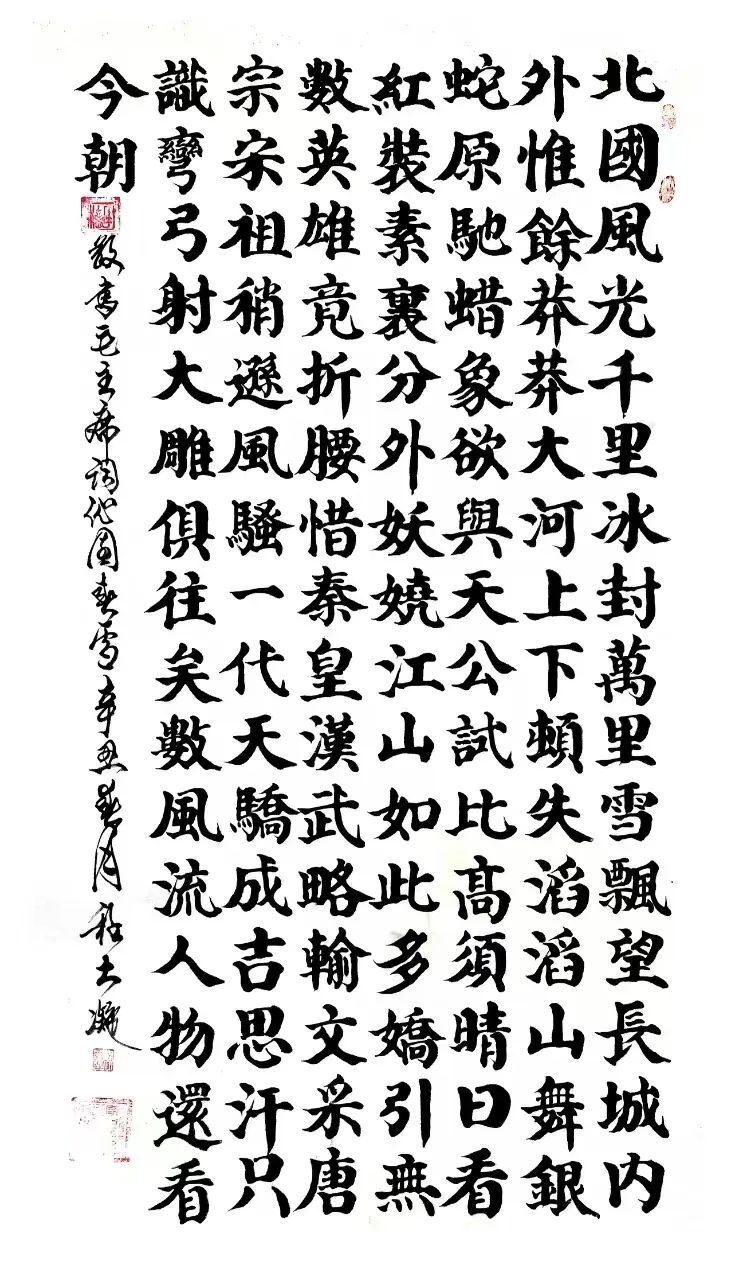 北國風光千里冰封萬里雪飄望長城内
外惟餘莽莽大河上下頓失滔滔山舞銀
蛇原馳蜡象欲與天公試比高須晴日看
紅裝素裏分外妖嬈江山如此多嬌引無
數英雄竟折腰惜秦皇漢武略輸文采唐
宗宋祖稍遜風騷一代天驕成吉思汗只
識彎弓射大雕俱往矣數風流人物還看
今朝
敬書毛主席詞沁園春雪辛丑春月程大